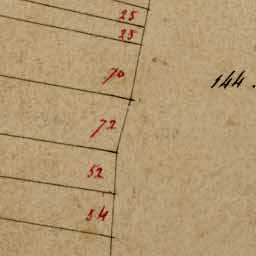 25
25
70
144.
72
52
54